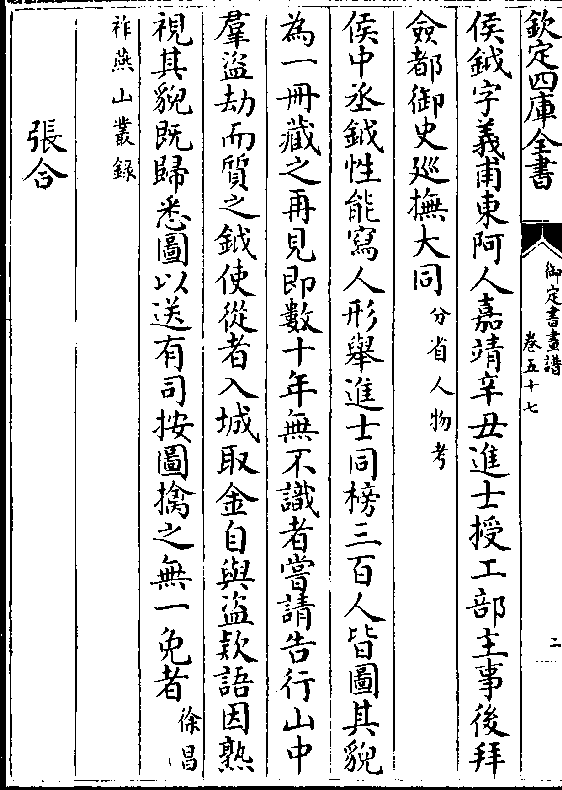 欽定四庫全書
御定書畫譜
卷五十七
二
侯鉞字義甫東阿人嘉靖辛丑進士授工部主事後拜
僉都御史廵撫大同分省人物考
侯中丞鉞性能寫人形舉進士同榜三百人皆圖其貌
為一冊藏之再見即數十年無不識者嘗請告行山中
羣盜劫而質之鉞使從者入城取金自與盜欵語因熟
視其貌既歸悉圖以送有司按圖擒之無一免者徐昌
祚燕山叢録
張合